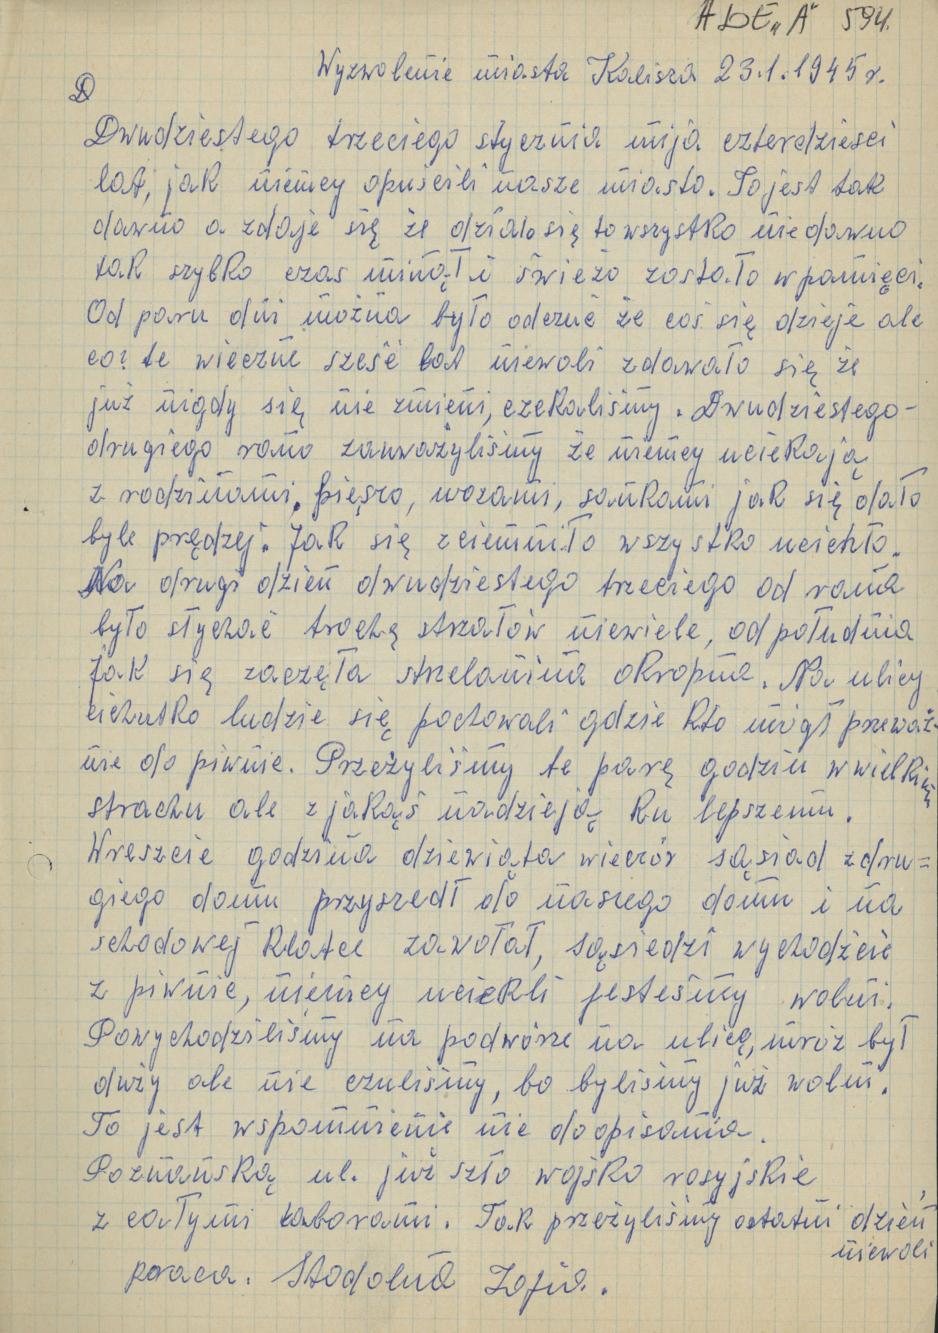 ADE „A" 594.
Wyzwolenie miasta Kalisza 23.1.1945 r.
D
Dwudziestego trzeciego stycznia mija czterdzieści
lat, jak niemcy opuścili nasze miasto. To jest tak
dawno a zdaje się że działo się to wszystko niedawno
tak szybko czas minął i świeżo zostało w pamięci.
Od paru dni można było odczuć że coś się dzieje ale
co? te wieczne sześć lat niewoli zdawało się że
już nigdy się nie zmieni, czekaliśmy. Dwudziestego-
drugiego rano zauważyliśmy że niemcy uciekają
z rodzinami, pieszo, wozami, sankami jak się dało
byle prędzej. Jak się zciemniło wszystko ucichło.
Na drugi dzień dwudziestego trzeciego od rana
było słychać trochę strzałów niewiele, od południa
jak się zaczęła strzelanina okropna. Na ulicy
cichutko ludzie się pochowali gdzie kto mógł przeważ-
nie do piwnic. Przeżyliśmy te parę godzin w wielkim
strachu ale z jakąś nadzieją ku lepszemu.
Wreszcie godzina dziewiąta wieczór sąsiad z dru=
giego domu przyszedł do naszego domu i na
schodowej klatce zawołał, sąsiedzi wychodźcie
z piwnic, niemcy uciekli jesteśmy wolni.
Powychodziliśmy na podwórze na ulicę, mróz był
duży ale nie czuliśmy, bo byliśmy już wolni.
To jest wspomnienie nie do opisania.
Poznańską ul. już szło wojsko rosyjskie
z całymi taborami. Tak przeżyliśmy ostatni dzień
niewoli
praca. Stodolna Zofia.